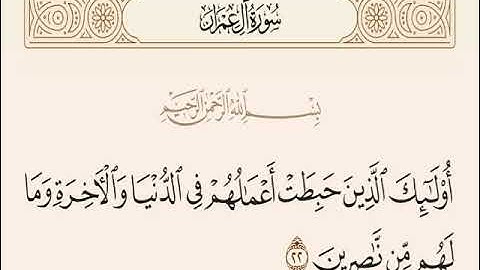 سُورَةُ آلِ عِمْرَانَ
بِسْمِ اللَّهِ الرَّحْمَٰنِ الرَّحِيمِ
أُو۟لَٰٓئِكَ ٱلَّذِينَ حَبِطَتْ أَعْمَٰلُهُمْ فِى ٱلدُّنْيَا وَٱلْءَاخِرَةِ وَمَا
لَهُم مِّن نَّٰصِرِينَ ٢٢